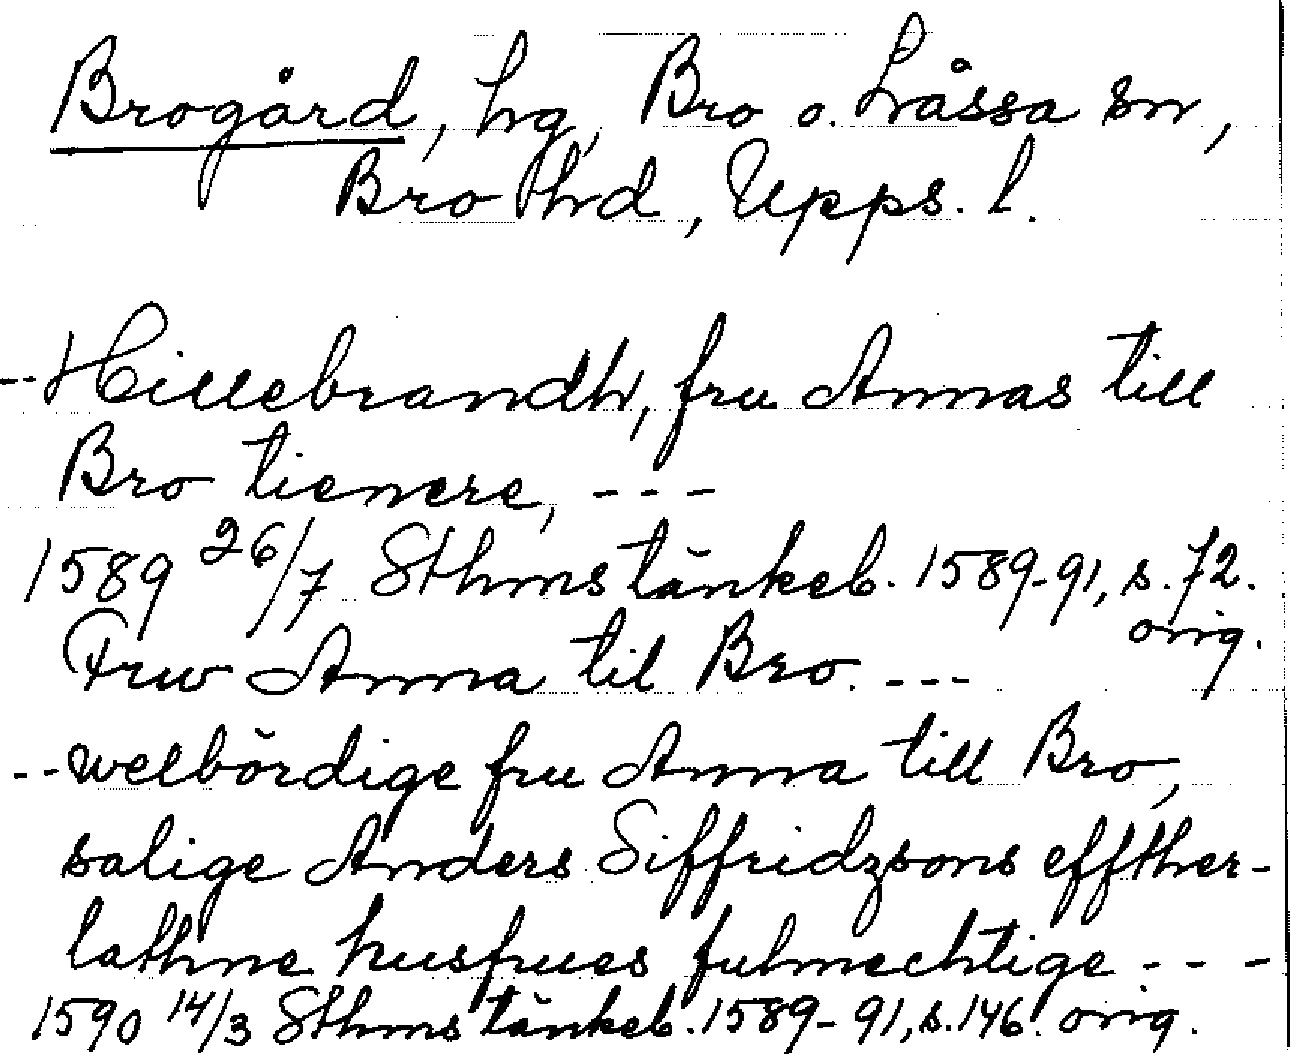 Brogård, hg, Bro o. Låssa snr,
Bro hrd, Upps. l.
--Hillebrandh, fru Annas till
Bro tienere, ---
1589 26/7 Sthms tänkeb. 1589-91, s. 72.
orig.
Frw Anna til Bro. ---
--welbördige fru Anna till Bro,
salige Anders Siffridzsons effther-
lathne husfrues fulmechtige ---
1590 14/3 Sthms tänkeb. 1589-91, s. 146. orig.